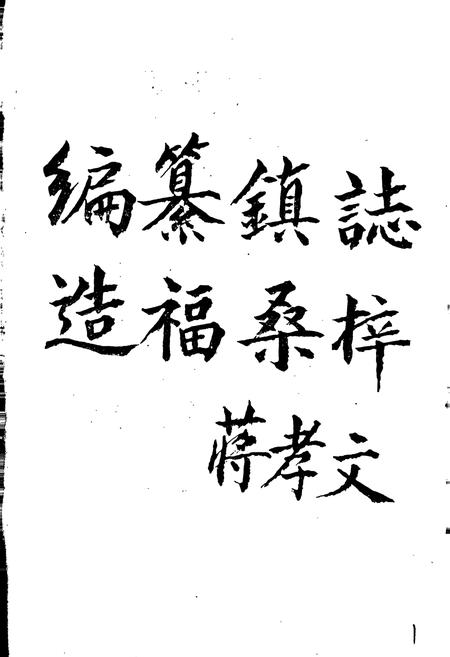 编纂鎮誌
造福桑梓
蒋孝文
1